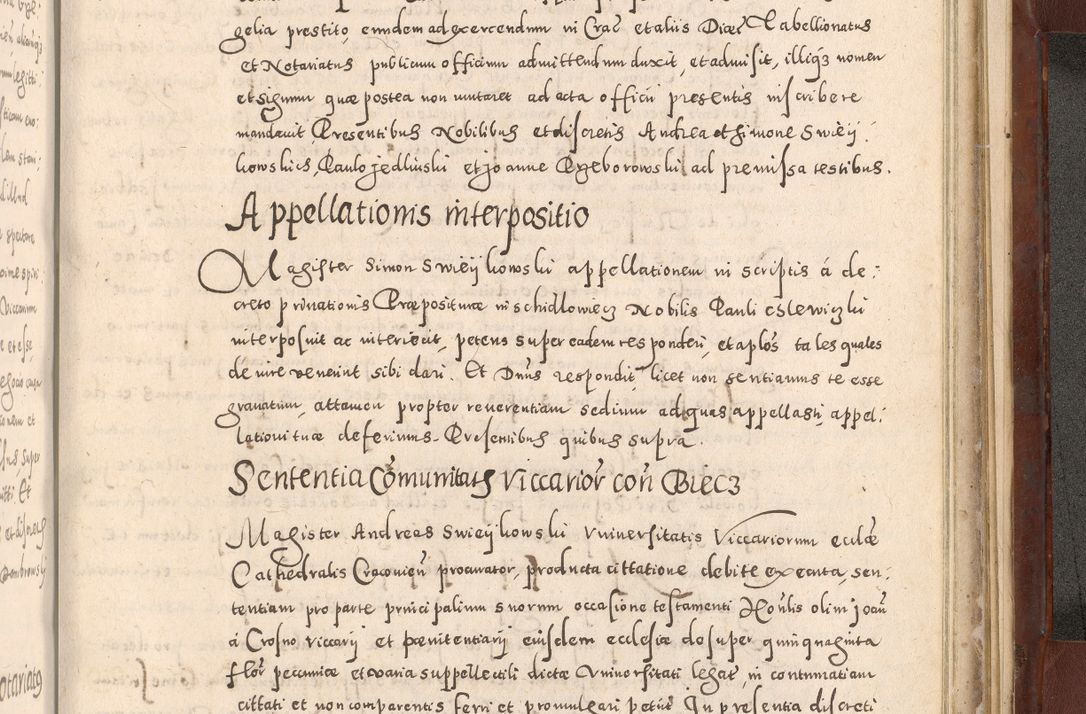 gelia prestito, eundem ad exercendum in Crac et aliis Diæc Tabellionatus
et Notariatus publicum officium admittendum duxit, et admisit, illiqz nomen
et signum quæ postea non mutaret ad acta officii presentis inscribere
mandavit Presentibus Nobilibus et discretis Andrea et Simone Swieÿ:
kowskich, Paulo Jedlinski et Joanne Przeborowski ad premissa testibus.
Appellationis interpositio
Magister Simon Swieÿkowski appellationem in scriptis á de:
creto privationis Præpositurae in Schidlowiecz Nobilis Pauli
interposuit ac interiecit, petens super eadem responderi, et aplos tales quales
de iure venerint sibi dari. Et Dnus respondit, licet non sentiamus te esse
gravatum, attamen propter reverentiam sedium ad quas appellasti, appel:
lationi tuæ deferimus. Presentibus quibus supra.
Sententia Comunitatis Viccarior con Biecz
Magister Andreas Swieÿkowski Vniversitatis Viccariorum eccliæ
Cathedralis Cracovien procurator, producta cittatione debite executa, sen:
tentiam pro parte principalium suorum occasione testamenti Honlis olim Joan
á Crosno viccarij et pænitentiarij eiusdem ecclesiæ do super quinquaginta
flor pecuniæ et varia suppellectili dictæ Vniversitati legat, in contumatiam
cittati et non comparentis ferri et promulgari petiit In presentia discreti